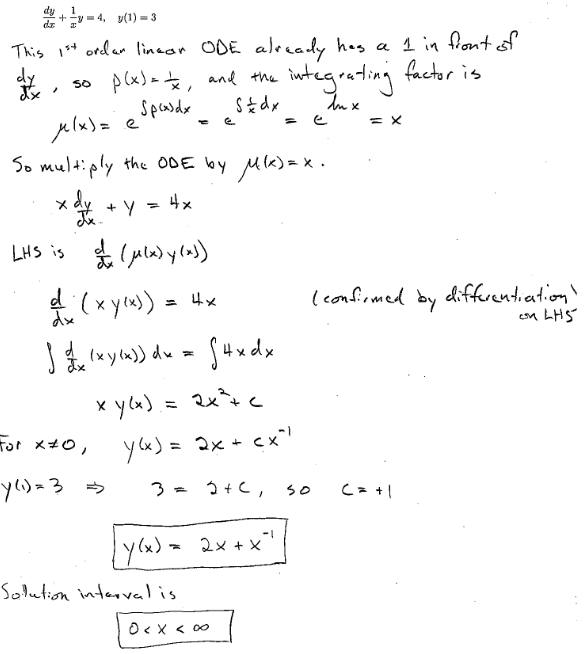 dy/dx + 1/x y = 4, y(1) = 3
This 1st order linear ODE already has a 1 in front of
dy/dx, so p(x) = 1/x, and the integrating factor is
μ(x) = e^∫p(x)dx = e^∫1/x dx = e^ln x = x
So multiply the ODE by μ(x) = x.
x dy/dx + y = 4x
LHS is d/dx (μ(x) y(x))
d/dx (x y(x)) = 4x (confirmed by differentiation) on LHS
∫ d/dx (x y(x)) dx = ∫ 4x dx
x y(x) = 2x² + c
For x≠0, y(x) = 2x + cx⁻¹
y(1) = 3 ⇒ 3 = 2 + C, so C = +1
y(x) = 2x + x⁻¹
Solution interval is
0 < x < ∞